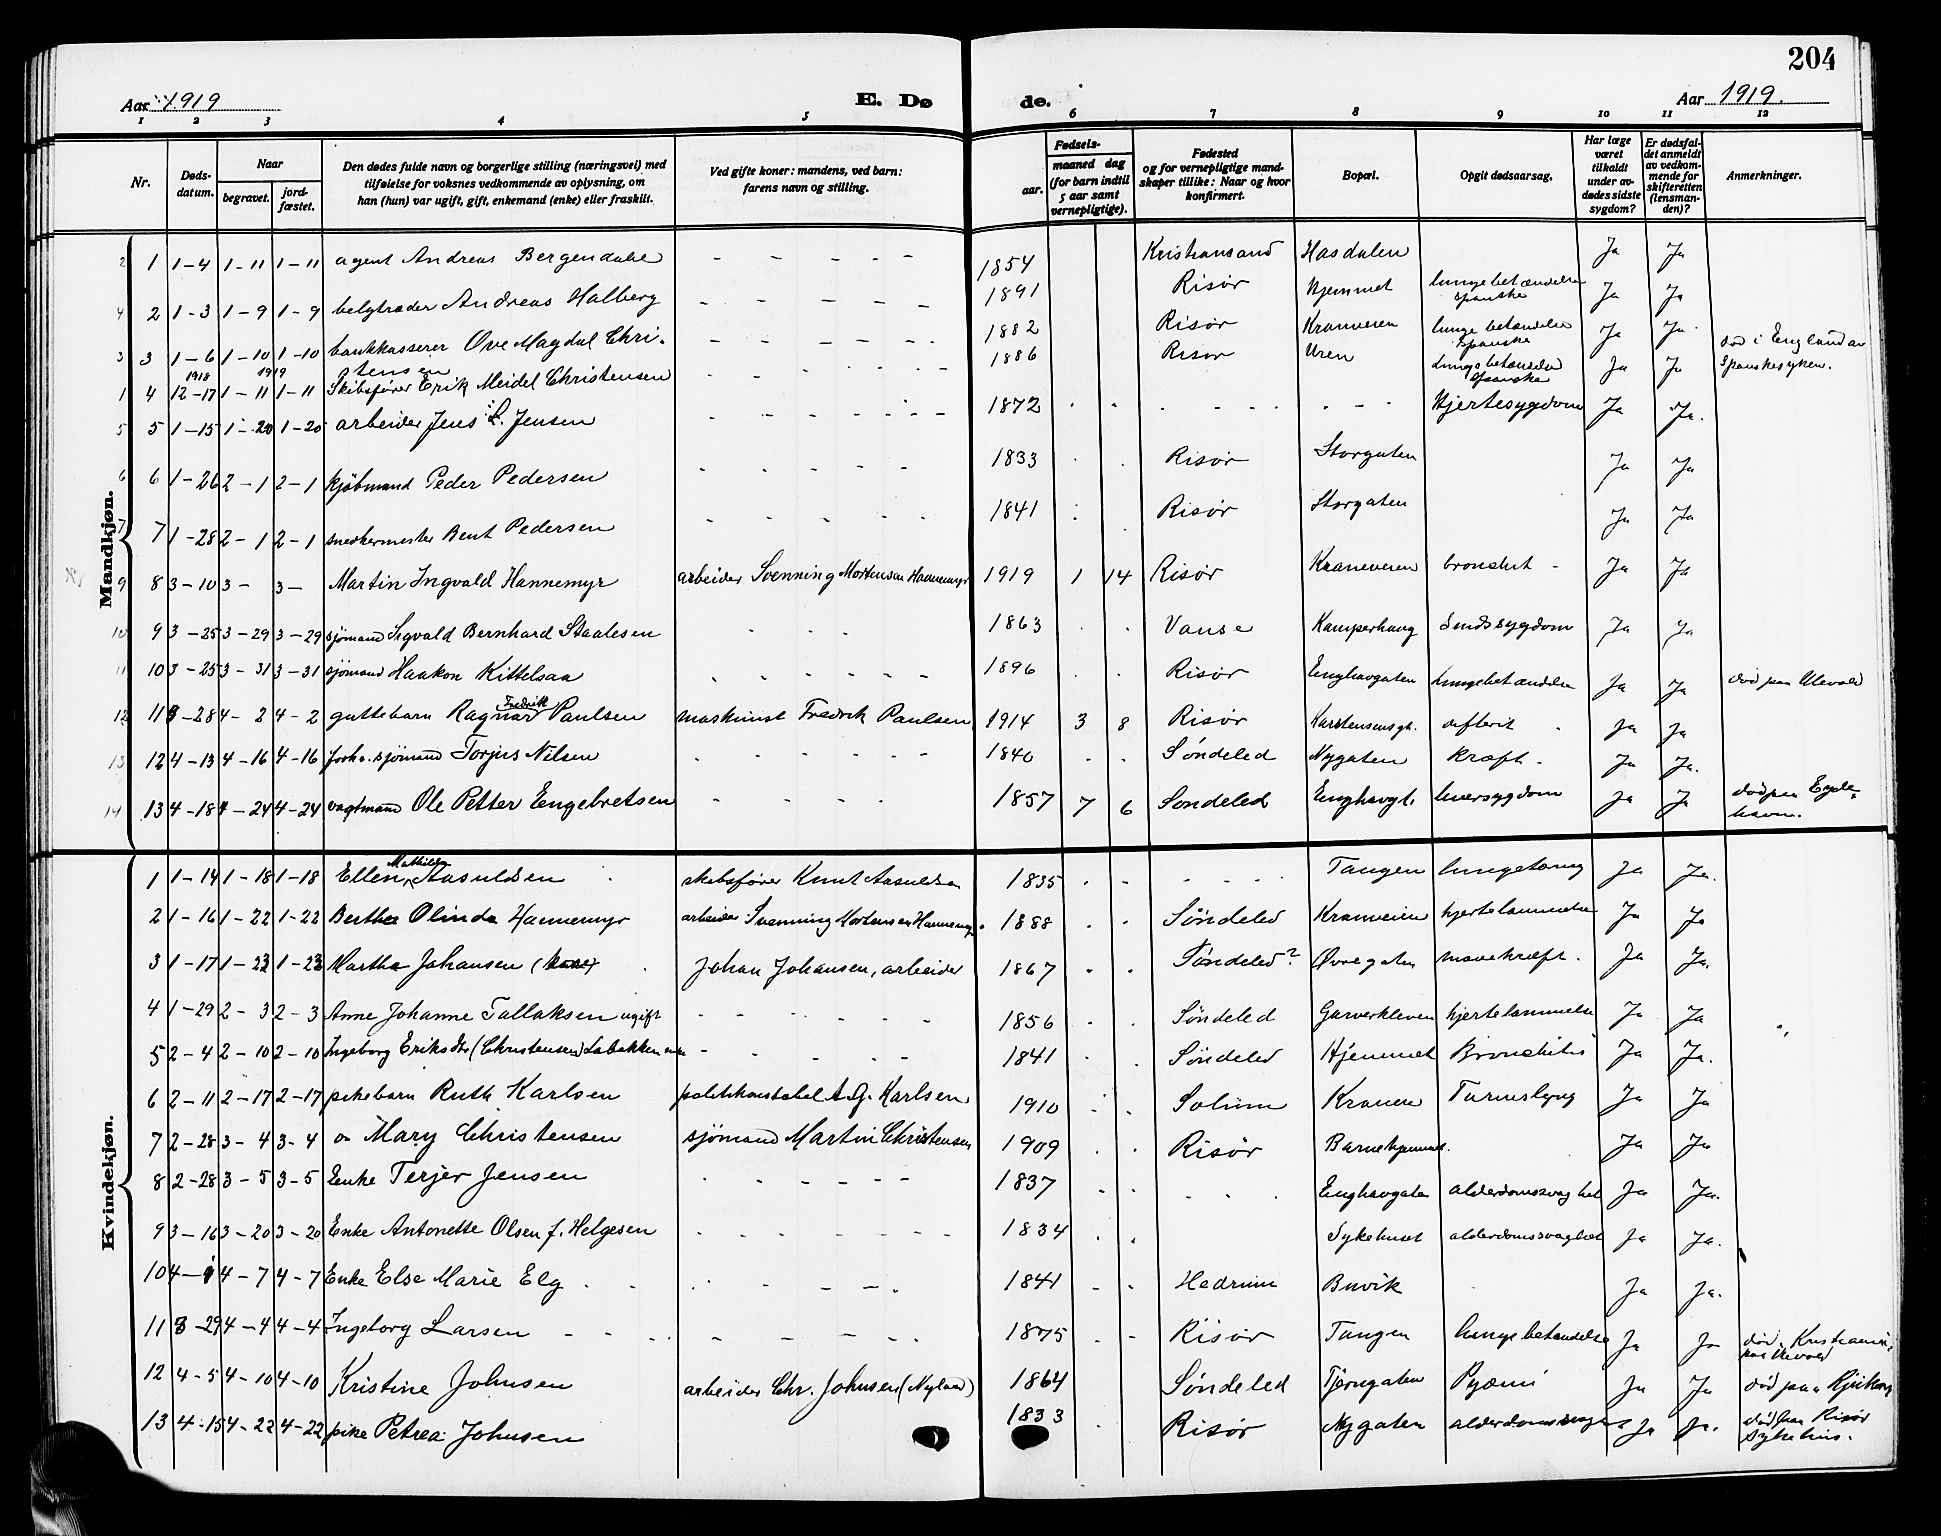 204
Aar 1919 E. Dø de. Aar 1919.
1 2 3 4 5 6 7 8 9 10 11 12
Nr. Døds-datum. Naar begravet. jord-fæstet. Den dødes fulde navn og borgerlige stilling (næringsvei) med tilføielse for voksnes vedkommende av oplysning, om han (hun) var ugift, gift, enkemand (enke) eller fraskilt. Ved gifte koner: mandens, ved barn: farens navn og stilling. Fødsels- aar. maaned dag (for barn indtil 5 aar samt vernepligtige). Fødested og for vernepligtige mand-skaper tillike: Naar og hvor konfirmert. Bopæl. Opgit dødsaarsag. Har læge været tilkaldt under av-dødes sidste sygdom? Er dødsfal-det anmeldt av vedkom-mende for skifteretten (lensman-den)? Anmerkninger.
Mandkjøn.
2 1 1-4 1-11 1-11 agent Andreas Bergendahl - - - - - 1854 Kristiansand Hasdalen Ja Ja
4 2 1-3 1-9 1-9 Andreas Halberg - - - - - 1891 Risør Hjemmet lungebetændelse spanske Ja Ja
3 3 1-6 1-10 1-10 bankkasserer Ove Magdal Chri-stensen - - - - - 1882 Risør Kranveien lungebetændelse spanske Ja Ja
1 4 1918 12-17 1919 1-11 1-11 Skibsfører Erik Meidel Christensen - - - - - 1886 Risør Uren Lungebetændelse spanske Ja Ja død i England av Spanskesyken.
5 5 1-15 1-20 1-20 arbeider Jens L. Jensen - - - - - 1872 - - - - - - - - Hjertesygdom Ja Ja.
6 6 1-26 2-1 2-1 kjøbmand Peder Pedersen - - - - - 1833 Risør Storgaten Ja Ja
7 7 1-28 2-1 2-1 snedkermester Bent Pedersen - - - - - 1841 Risør Storgaten Ja Ja
9 8 3-10 3- 3- Martin Ingvald Hannemyr arbeider Svenning Mortensen Hannemyr 1919 1 14 Risør Kraneveien bronchit - Ja Ja
10 9 3-25 3-29 3-29 sjømand Sigvald Bernhard Staalesen - - - 1863 Vanse Kamperhaug Sindssygdom Ja Ja
11 10 3-25 3-31 3-31 sjømand Haakon Kittelsaa - - - - - 1896 Risør Enghavgaten Lungebetændelse Ja Ja død paa Ulevold
12 11 3-28 4-2 4-2 guttebarn Ragnar Fredrik Paulsen maskinist Fredrik Paulsen 1914 3 8 Risør Karstensensgt. difterit Ja Ja
13 12 4-13 4-16 4-16 forh. sjømand Torjus Nilsen - - - - - 1840 Søndeled Nygaten kræft. Ja Ja.
14 13 4-18 4-24 4-24 vagtmand Ole Petter Engebretsen - - - - 1857 7 6 Søndeled Enghavgt. leversygdom Ja Ja død paa Eyde-havn.
Kvindekjøn.
1 1-14 1-18 1-18 Ellen Mathilde Aasuldsen skibsfører Knut Aasuldsen 1835 - - - - - - Tangen Ja Ja.
2 1-16 1-22 1-22 Berthe Olinde Hannemyr arbeider Svenning Mortensen Hannemyr 1888 Søndeled Kranveien hjertelammelse Ja Ja
3 1-17 1-23 1-23 Martha Johansen (kone) Johan Johansen, arbeider 1867 Søndeled? Øvregaten mavekræft. Ja Ja.
4 1-29 2-3 2-3 Anne Johanne Tallaksen ugift - - - - - 1856 Søndeled Garverkleven hjertelammelse Ja Ja
5 2-4 2-10 2-10 Ingeborg Eriksdtr (Christensen) Løbakken enke - - - - - 1841 Søndeled Hjemmet Bronchitis Ja Ja.
6 2-11 2-17 2-17 pikebarn Ruth Karlsen politikonstabel A. G. Karlsen 1910 Solum Kranen Ja Ja
7 2-28 3-4 3-4 Mary Christensen sjømand Martin Christensen 1909 Risør Barnehjemmet. Ja Ja
8 2-28 3-5 3-5 Enke Terjer Jensen - - - - - 1837 - - - Enghavgaten alderdomssvaghet Ja Ja.
9 3-16 3-20 3-20 Enke Antonette Olsen f. Helgesen - - - - - 1834 Sykehuset alderdomssvaghet Ja Ja.
10 4-1 4-7 4-7 Enke Else Marie Elg - - - - - 1841 Hedrum Buvik Ja Ja.
11 3-29 4-4 4-4 Ingeborg Larsen - - - - - 1875 Risør Tangen lungebetændelse Ja Ja død i Kristiania, paa Ulevold
12 4-5 4-10 4-10 Kristine Johnsen arbeider Chr. Johnsen (Nyland) 1864 Søndeled Tjerngaten Pyæmi Ja Ja død paa Rjukan
13 4-15 4-22 4-22 pike Petrea Johnsen 1833 Risør Nygaten alderdomssvagh Ja Ja. død paa Risør sykehus.